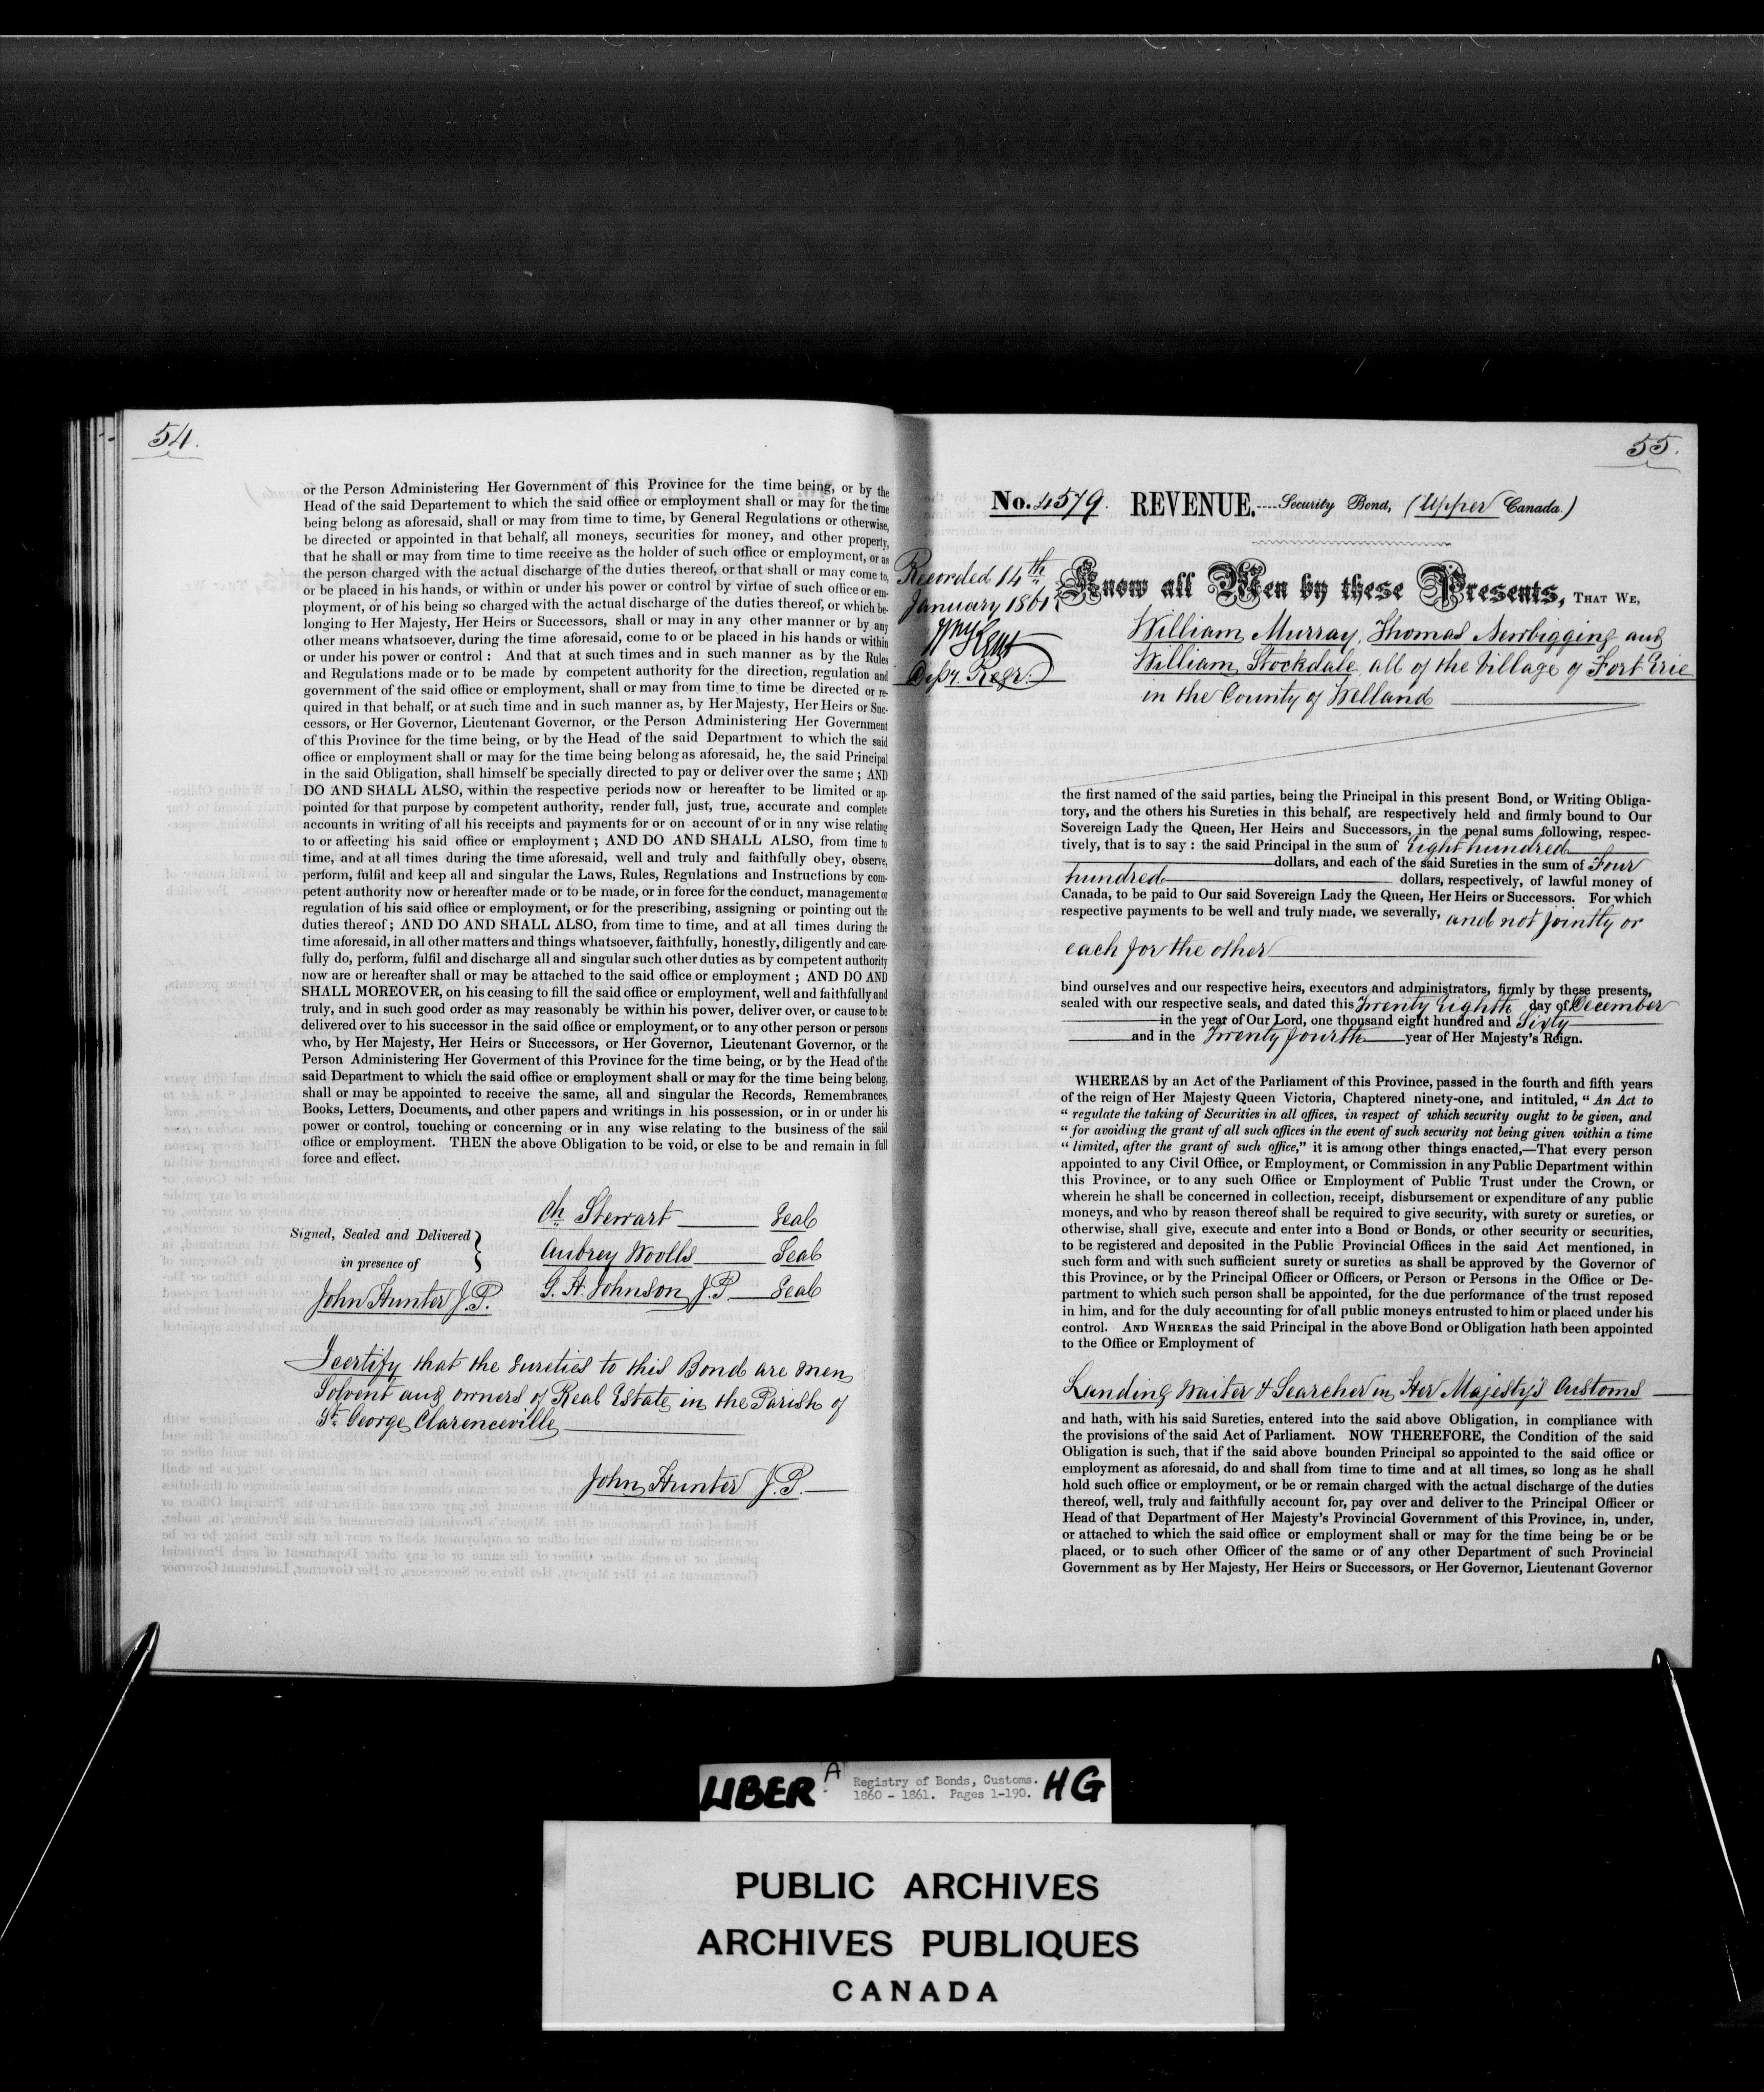 54.
or the Person Administering Her Government of this Province for the time being, or by the
Head of the said Departement to which the said office or employment shall or may for the time
being belong as aforesaid, shall or may from time to time, by General Regulations or otherwise,
be directed or appointed in that behalf, all moneys, securities for money, and other property,
that he shall or may from time to time receive as the holder of such office or employment, or as
the person charged with the actual discharge of the duties thereof, or that shall or may come to,
or be placed in his hands, or within or under his power or control by virtue of such office or em-
ployment, or of his being so charged with the actual discharge of the duties thereof, or which be-
longing to Her Majesty, Her Heirs or Successors, shall or may in any other manner or by any
other means whatsoever, during the time aforesaid, come to or be placed in his hands or within
or under his power or control : And that at such times and in such manner as by the Rules
and Regulations made or to be made by competent authority for the direction, regulation and
government of the said office or employment, shall or may from time to time be directed or re-
quired in that behalf, or at such time and in such manner as, by Her Majesty, Her Heirs or Suc-
cessors, or Her Governor, Lieutenant Governor, or the Person Administering Her Government
of this Province for the time being, or by the Head of the said Department to which the said
office or employment shall or may for the time being belong as aforesaid, he, the said Principal
in the said Obligation, shall himself be specially directed to pay or deliver over the same ; AND
DO AND SHALL ALSO, within the respective periods now or hereafter to be limited or ap-
pointed for that purpose by competent authority, render full, just, true, accurate and complete
accounts in writing of all his receipts and payments for or on account of or in any wise relating
to or affecting his said office or employment ; AND DO AND SHALL ALSO, from time to
time, and at all times during the time aforesaid, well and truly and faithfully obey, observe,
perform, fulfil and keep all and singular the Laws, Rules, Regulations and Instructions by com-
petent authority now or hereafter made or to be made, or in force for the conduct, management or
regulation of his said office or employment, or for the prescribing, assigning or pointing out the
duties thereof ; AND DO AND SHALL ALSO, from time to time, and at all times during the
time aforesaid, in all other matters and things whatsoever, faithfully, honestly, diligently and care-
fully do, perform, fulfil and discharge all and singular such other duties as by competent authority
now are or hereafter shall or may be attached to the said office or employment ; AND DO AND
SHALL MOREOVER, on his ceasing to fill the said office or employment, well and faithfully and
truly, and in such good order as may reasonably be within his power, deliver over, or cause to be
delivered over to his successor in the said office or employment, or to any other person or persons
who, by Her Majesty, Her Heirs or Successors, or Her Governor, Lieutenant Governor, or the
Person Administering Her Goverment of this Province for the time being, or by the Head of the
said Department to which the said office or employment shall or may for the time being belong,
shall or may be appointed to receive the same, all and singular the Records, Remembrances,
Books, Letters, Documents, and other papers and writings in his possession, or in or under his
power or control, touching or concerning or in any wise relating to the business of the said
office or employment. THEN the above Obligation to be void, or else to be and remain in full
force and effect.
Ch Stewart Seal
Signed, Sealed and Delivered
Aubrey Woolls Seal
in presence of
John Hunter J.P. G. H. Johnson J.P Seal
I certify that the Sureties to this Bond are men
Solvent and owners of Real Estate in the Parish of
St. George Clarenceville
John Hunter J.P.
55.
No. 4579. REVENUE.----Security Bond, (Upper Canada.)
Recorded 14th
January 1861.
Wm Kent
Depy. Regr.
Know all Men by these Presents, THAT WE,
William Murray, Thomas Newbigging and
William Stockdale all of the Village of Fort Erie
in the County of Welland
the first named of the said parties, being the Principal in this present Bond, or Writing Obliga-
tory, and the others his Sureties in this behalf, are respectively held and firmly bound to Our
Sovereign Lady the Queen, Her Heirs and Successors, in the penal sums following, respec-
tively, that is to say : the said Principal in the sum of Eight hundred
dollars, and each of the said Sureties in the sum of Four
hundred dollars, respectively, of lawful money of
Canada, to be paid to Our said Sovereign Lady the Queen, Her Heirs or Successors. For which
respective payments to be well and truly made, we severally, and not jointly or
each for the other
bind ourselves and our respective heirs, executors and administrators, firmly by these presents,
sealed with our respective seals, and dated this Twenty Eighth day of December
in the year of Our Lord, one thousand eight hundred and Sixty
and in the Twenty fourth year of Her Majesty's Reign.
WHEREAS by an Act of the Parliament of this Province, passed in the fourth and fifth years
of the reign of Her Majesty Queen Victoria, Chaptered ninety-one, and intituled, " An Act to
" regulate the taking of Securities in all offices, in respect of which security ought to be given, and
" for avoiding the grant of all such offices in the event of such security not being given within a time
" limited, after the grant of such office," it is among other things enacted,—That every person
appointed to any Civil Office, or Employment, or Commission in any Public Department within
this Province, or to any such Office or Employment of Public Trust under the Crown, or
wherein he shall be concerned in collection, receipt, disbursement or expenditure of any public
moneys, and who by reason thereof shall be required to give security, with surety or sureties, or
otherwise, shall give, execute and enter into a Bond or Bonds, or other security or securities,
to be registered and deposited in the Public Provincial Offices in the said Act mentioned, in
such form and with such sufficient surety or sureties as shall be approved by the Governor of
this Province, or by the Principal Officer or Officers, or Person or Persons in the Office or De-
partment to which such person shall be appointed, for the due performance of the trust reposed
in him, and for the duly accounting for of all public moneys entrusted to him or placed under his
control. AND WHEREAS the said Principal in the above Bond or Obligation hath been appointed
to the Office or Employment of
Landing Waiter & Searcher in Her Majesty's Customs
and hath, with his said Sureties, entered into the said above Obligation, in compliance with
the provisions of the said Act of Parliament. NOW THEREFORE, the Condition of the said
Obligation is such, that if the said above bounden Principal so appointed to the said office or
employment as aforesaid, do and shall from time to time and at all times, so long as he shall
hold such office or employment, or be or remain charged with the actual discharge of the duties
thereof, well, truly and faithfully account for, pay over and deliver to the Principal Officer or
Head of that Department of Her Majesty's Provincial Government of this Province, in, under,
or attached to which the said office or employment shall or may for the time being be or be
placed, or to such other Officer of the same or of any other Department of such Provincial
Government as by Her Majesty, Her Heirs or Successors, or Her Governor, Lieutenant Governor
LIBER A Registry of Bonds, Customs. HG
1860 - 1861. Pages 1-190.
PUBLIC ARCHIVES
ARCHIVES PUBLIQUES
CANADA